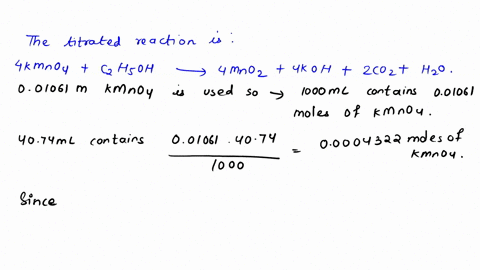 The titrated reaction is:
4KMnO4 + C2H5OH → 4MnO2 + 4KOH + 2CO2 + H2O.
0.01061 m KMnO4 is used so → 1000mL contains 0.01061
moles of KMnO4.
40.74mL contains 0.01061 . 40.74 / 1000 = 0.0004322 moles of
KMnO4.
Since